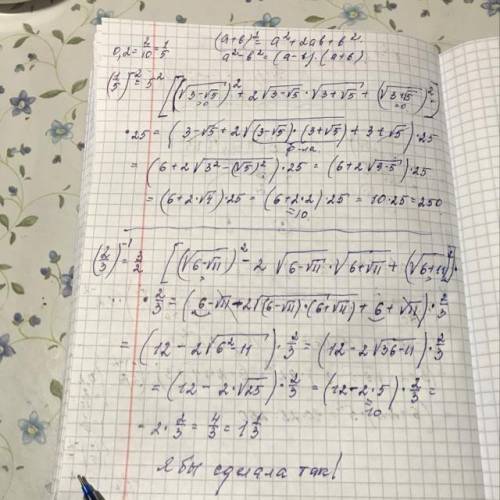 0,2 = 2/10 = 1/5   (a+b)² = a² + 2ab + b²
a² - b² = (a - b)·(a+b)
(1/5)⁻² = 5²   [(√(3-√5))² + 2√(3-√5) · √(3+√5) + (√(3+√5))²]·
·25 = (3-√5 + 2√((3-√5)·(3+√5)) + 3+√5)·25
ф-ла
= (6+2√(3²-(√5)²))·25 = (6+2√(9-5))·25
= (6+2·√4)·25 = (6+2·2)·25 = 10·25 = 250
=10
(2/3)⁻¹ = 3/2   [(√(6-√11))² - 2√(6-√11) · √(6+√11) + (√(6+√11))²]·
·2/3 = (6-√11 - 2√((6-√11)·(6+√11)) + 6 + √11)·2/3
= (12 - 2√(6²-11))·2/3 = (12 - 2√(36-11))·2/3
= (12 - 2·√25)·2/3 = (12-2·5)·2/3 =
=10
= 2·2/3 = 4/3 = 1 1/3
Я бы сделала так!